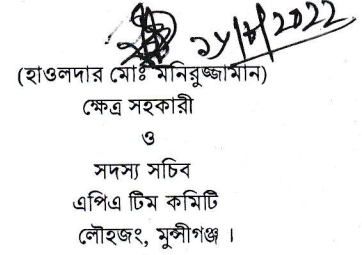 (হাওলদার মোঃ মনিরুজ্জামান)
ক্ষেত্র সহকারী
ও
সদস্য সচিব
এপিএ টিম কমিটি
লৌহজং, মুন্সীগঞ্জ ।